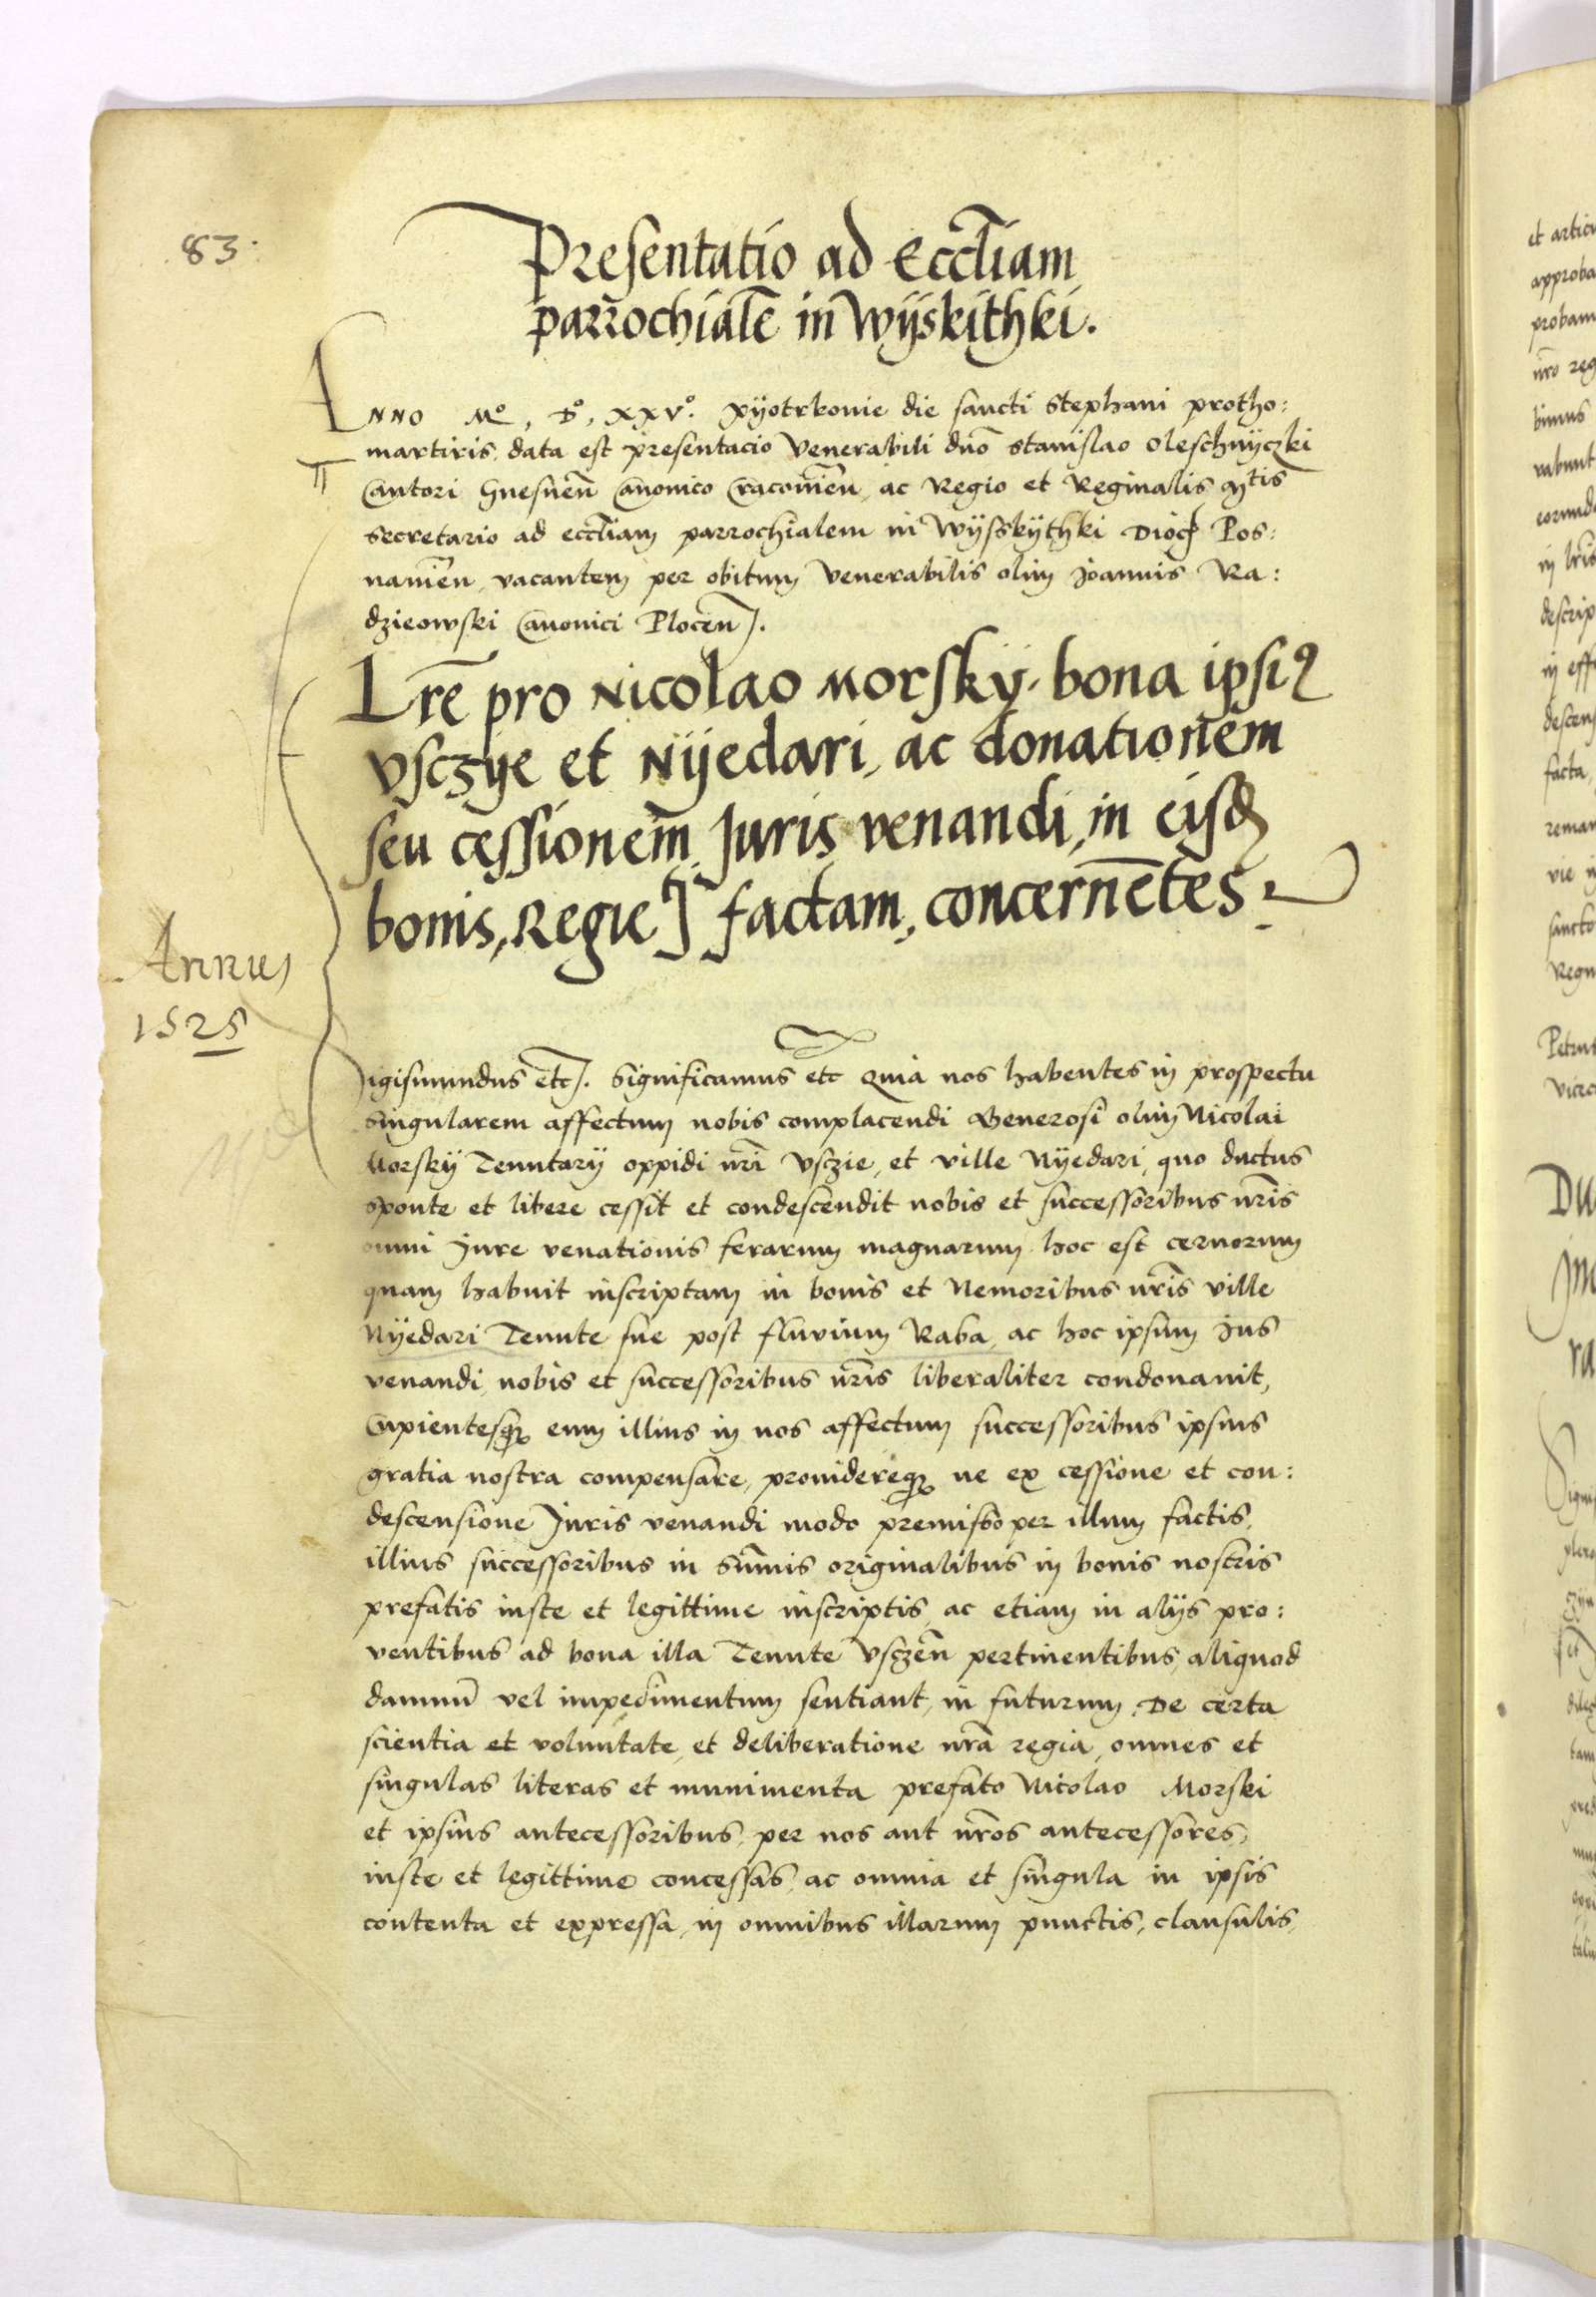 83.
Presentatio ad Eccl̃iam
parrochialẽ in Wÿskithki.
Anno Mº, Dº, XXVº. Pÿotrkouie die sancti Stephani protho:
martiris, data est presentacio Venerabili dn̄o Stanislao Oleschnÿczki
Cantori Gnesneñ Canonico Cracouieñ, ac Regio et Reginalis Mtis
Secretario ad eccl̃iam parrochialem in Wÿsskÿthki Dioc̃ Pos:
nanieñ, vacantem per obitum Venerabilis olim Joannis Ra:
dzieowski Canonici Ploceñ.
Lr̃e pro Nicolao Morskÿ, bona ipsiꝰ
Vsczÿe et Nÿedari, ac donationem
seu cessionem Juris venandi, in eisd̃
bonis, Regie factam, concernẽtes
Annus
1525
Sigismundus etc. Significamus etc̃ Quia nos habentes in prospectu
singularem affectum nobis complacendi Generosi olim Nicolai
Morskÿ Tenutarÿ oppidi nr̃i Vsczie, et ville Nÿedari, quo ductus
sponte et libere cessit et condescendit nobis et successoribus nr̃is
omni Jure venationis ferarum magnarum hoc est ceruorum
quam habuit inscriptam in bonis et Nemoribus nr̃is ville
Nÿedari Tenute sue post fluuium Raba, ac hoc ipsum Jus
venandi, nobis et successoribus nr̃is liberaliter condonauit,
Cupientesqꝫ eum illius in nos affectum successoribus ipsius
gratia nostra compensare, prouidereqꝫ ne ex cessione et con:
descensione Juris venandi modo premisso per illum factis,
illius successoribus in Sum̃is originalibus in bonis nostris
prefatis iuste et legittime inscriptis, ac etiam in alÿs pro:
ventibus ad bona illa Tenute Vsczeñ pertinentibus, aliquod
damnũ vel impedimentum sentiant, in futurum, De certa
scientia et voluntate, et deliberatione nr̃a regia, omnes et
singulas literas et munimenta prefato Nicolao Morski
et ipsius antecessoribus, per nos aut nr̃os antecessores,
iuste et legittime concessas, ac omnia et singula in ipsis
contenta et expressa, in omnibus illarum punctis, clausulis,